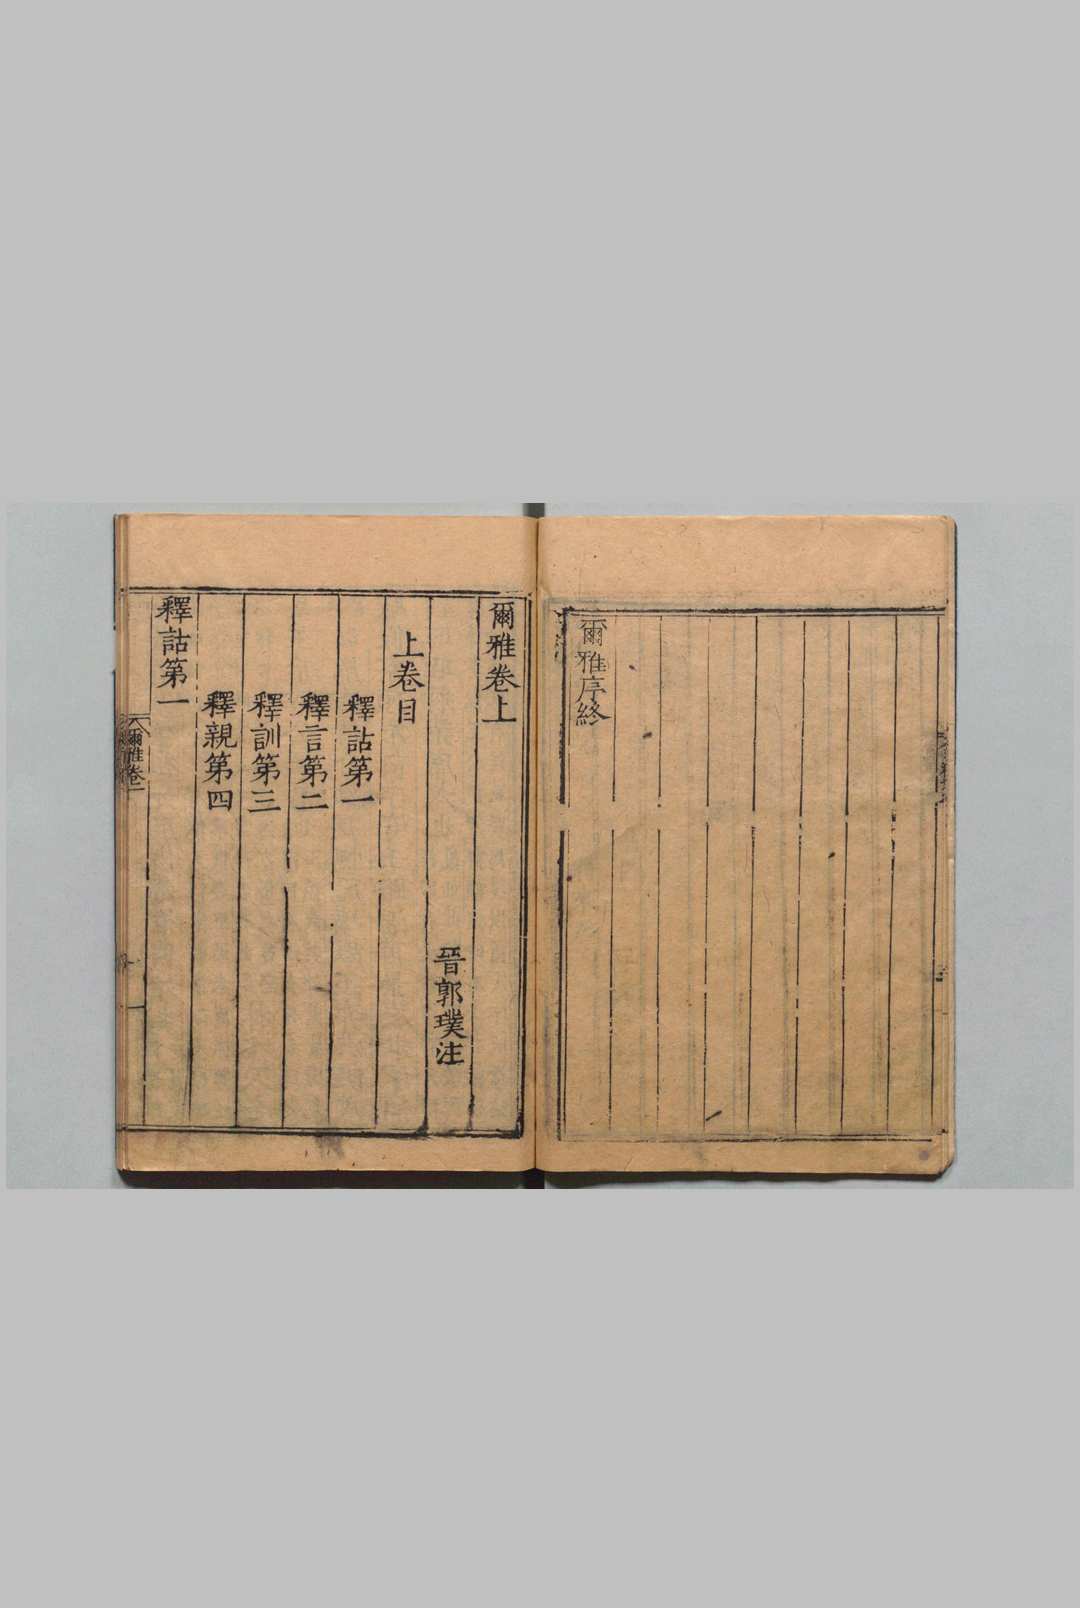 爾雅序終
爾雅卷上
晉郭璞注
上卷目
釋詁第一
釋言第二
釋訓第三
釋親第四
釋詁第一
爾雅卷